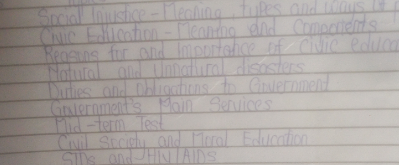 Social Injustice - Meaning, types and ways
Civic Education - Meaning and Components
Reasons for and Importance of Civic educa
Natural and Unnatural disasters
Duties and obligations to Government
Government's Main Services
Mid-term Test
Civil Society and Moral Education
STDs and HIV/AIDS